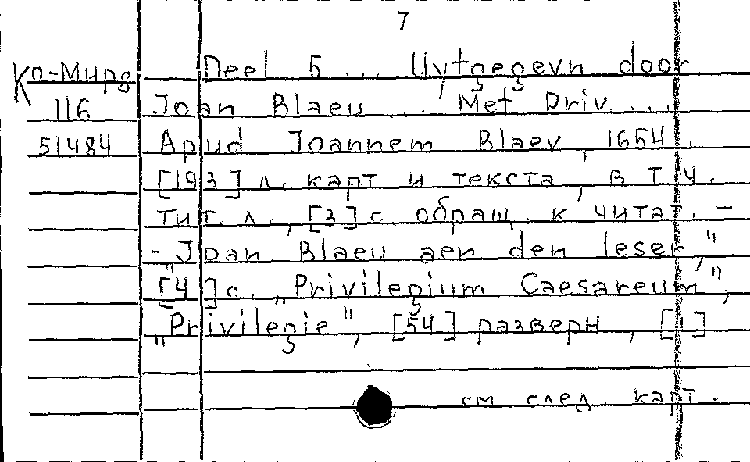 7
Ко-Мира Deel 5 ... Uytgegevn door
116 Joan Blaeu ... Met Priv ...
51484 Apud Joannem Blaev, 1654.
[193] л. карт и текста, в т. ч.
тит. л., [3] с. обращ. к читат. –
- „Joan Blaeu aen den leser,"
[4] с. „Privilegium Caesareum",
„Privilegie", [54] разверн., [1]
см след карт.